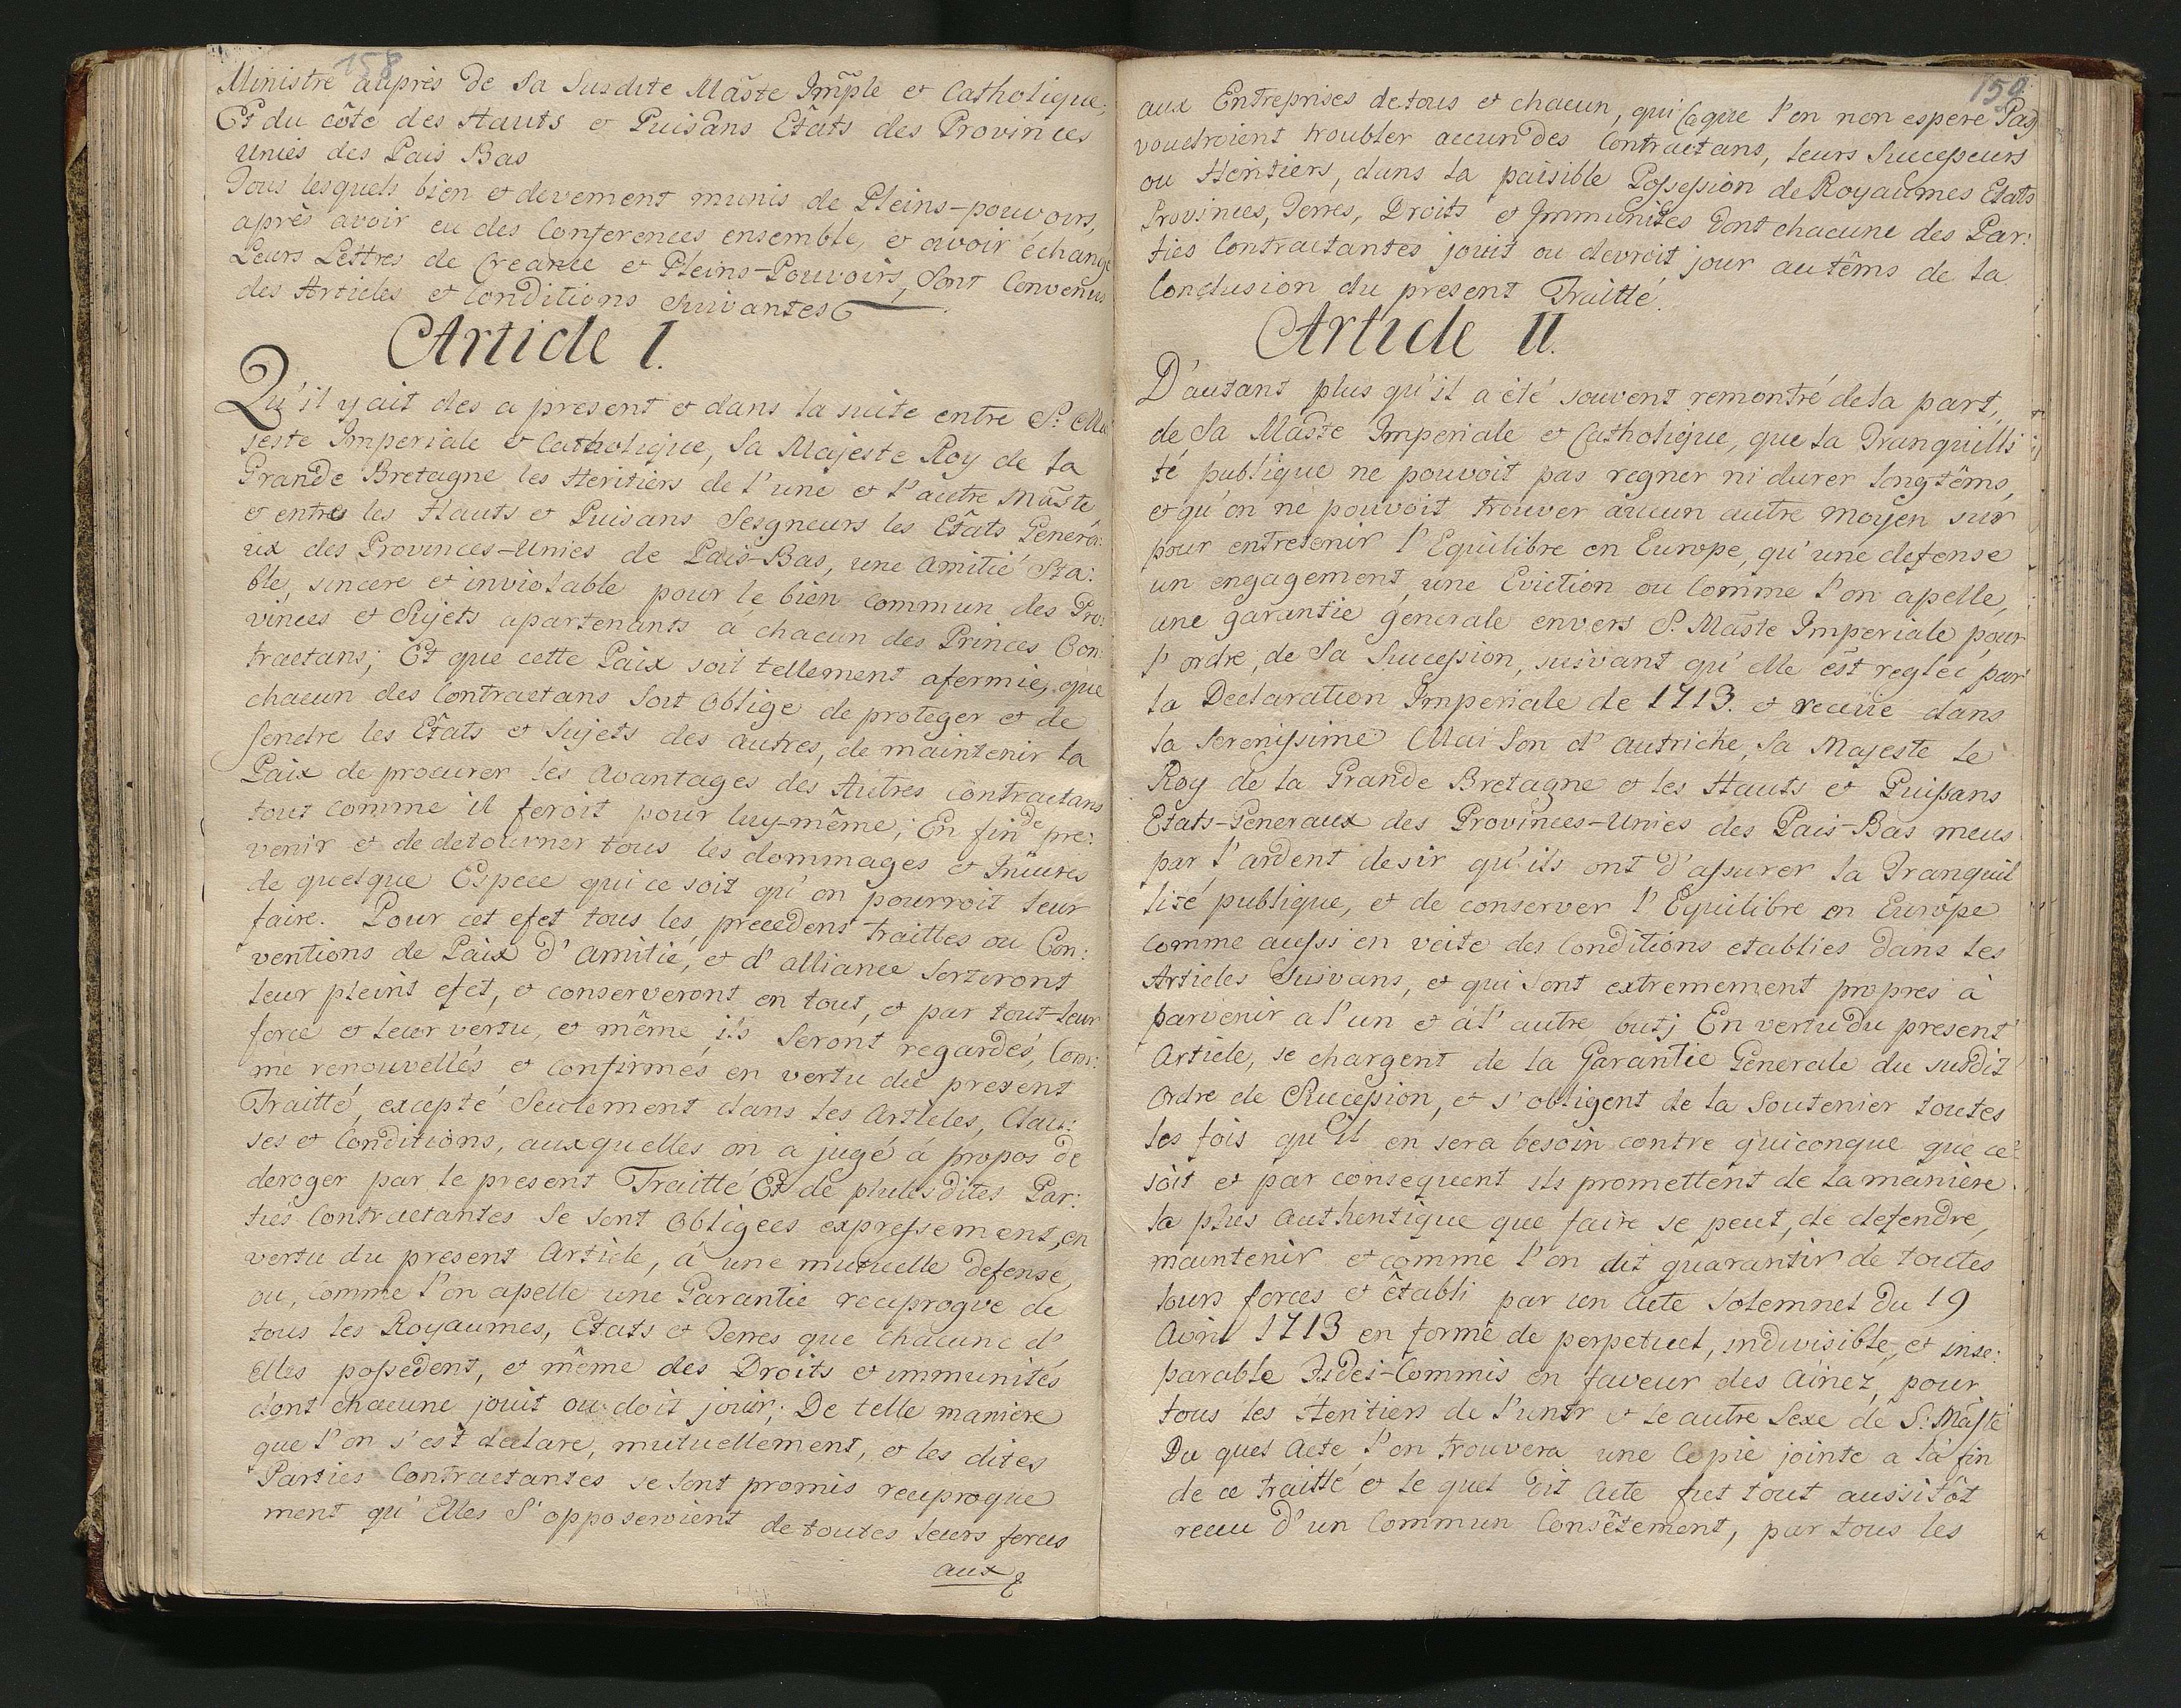 158
Ministre auprès de Sa Susdite Maste Imple et Catholique,
Et du côte des Hauts et Puisans Etâts des Provinces
Unies des Pais Bas
Tous lesquels bien et devement munis de Pleins-pouvoirs,
après avoir eu des Conferences ensemble, et avoir échangé
Leurs Lettres de Creance et Pleins-Pouvoirs, Sont Convenus
des Articles et Conditions suivantes
Article I.
Qu'il y ait des a present et dans la suite entre Sa. Ma
jeste Imperiale et Catholique, Sa Majeste Roy de la
Grande Bretagne les Heritiers de l'une et l'autre Maste
et entre les Hauts et Puisans Seigneurs les Etâts Genera:
ux des Provinces-Unies de Païs-Bas, une amitié Sta:
ble, sincere et inviolable pour le bien commun des Pro:
vinces et Sujets apartenants a chacun des Princes Con:
tractans; Et que cette Paix soit tellement afermie, que
chacun des Contractans Soit obligé de proteger et de
fendre les Etats et Sujets des autres, de maintenir la
Paix de procurer les avantages des Autres contractans
tout comme il feroit pour luy-même; En fin de pre:
venir et de detourner tous les dommages et Iniures
de quelque Espece qui ce soit qu'on pourroit leur
faire. Pour cet efet tous les precedens traittes ou Con:
ventions de Paix d'amitié, et d'alliance sortiront
leur pleint efet, et conserveront en tout, et par tout leur
force et leur vertu, et même ils Seront regardés, Com:
me renouvellés et confirmés en vertu du present
Traitté, excepté Seulement dans les Articles, Clau:
ses et Conditions, auxquelles on a jugé á propos de
deroger par le present Traitté Et de plus lesdites Par:
ties Contractantes Se sont obligees expressement, en
vertu du present Article, á une mutuelle defense,
ou, comme l'on apelle une Garantie reciproque de
tous les Royaumes, Etats et Terres que chacune d'
elles possedent, et même des Droits et immunités
dont chacune jouit ou doit jouir; De telle maniere
que l'on s'est declare, mutuellement, et les dites
Parties Contractantes se sont promis reciproque
ment qu'Elles S'opposeroient de toutes leurs forces
aux
159
aux Entreprises de tous et chacun, qui (ce que l'on non espere Pas)
voudroient troubler accun des Contractans, leurs Successeurs
ou Heritiers, dans la paisible Possession de Royaumes Etats
Provinces, Terres, Droits et Immunites dont chacune des Par:
ties Contractantes jouit ou devroit jour au têms de la
Conclusion du present Traitté.
Article II.
D'autant plus qu'il a été souvent remontré de la part,
de Sa Maste Imperiale et Catholique, que la Tranquilli
té publique ne pouvoit pas regner ni durer longtêms,
et qu'on ne pouvoit trouver aucun autre moyen sur
pour entretenir l'Equilibre en Europe, qu'une defense
un engagement, une Eviction ou comme l'on apelle,
une garantie generale envers S. Maste Imperiale, pour
l'ordre, de Sa Succession, suivant qu'elle est reglée par
la Declaration Imperiale de 1713. et recüe dans
la Serenissime Maison d'autriche, Sa Majeste le
Roy de la Grande Bretagne et les Hauts et Puissans
Etats-Generaux des Provinces-Unies des Pais-Bas meus
par l'ardent desir qu'ils ont d'assurer la Tranquil
lité publique, et de conserver l'Equilibre en Europe
comme aussi en veite des Conditions etablies dans les
Articles Suivans, et qui sont extremement propres à
parvenir a l'un et á l'autre but; En vertu du present
Article, se chargent de la Garantie Generale du susdit
Ordre de Succession, et s'obligent de la Soutenier toutes
les fois qu'il en sera besoin contre quiconque que ce
soit et par consequent ils promettent de la maniere
la plus authentique que faire se peut, de defendre,
maintenir et comme l'on dit guarantir de toutes
leurs forces et êtabli par un Acte Solemnel du 19
Avril 1713 en forme de perpetuel, indivisible, et inse:
parable Fidei-Commis en faveur des Ainez, pour
tous les Heritiers de l'un et le autre Sexe de Sa. Maste
Du quel Acte, l'on trouvera une Copie jointe a la fin
de ce traitté et le quel dit Acte fut tout aussitôt
recu d'un Commun Consêtement, par tous les